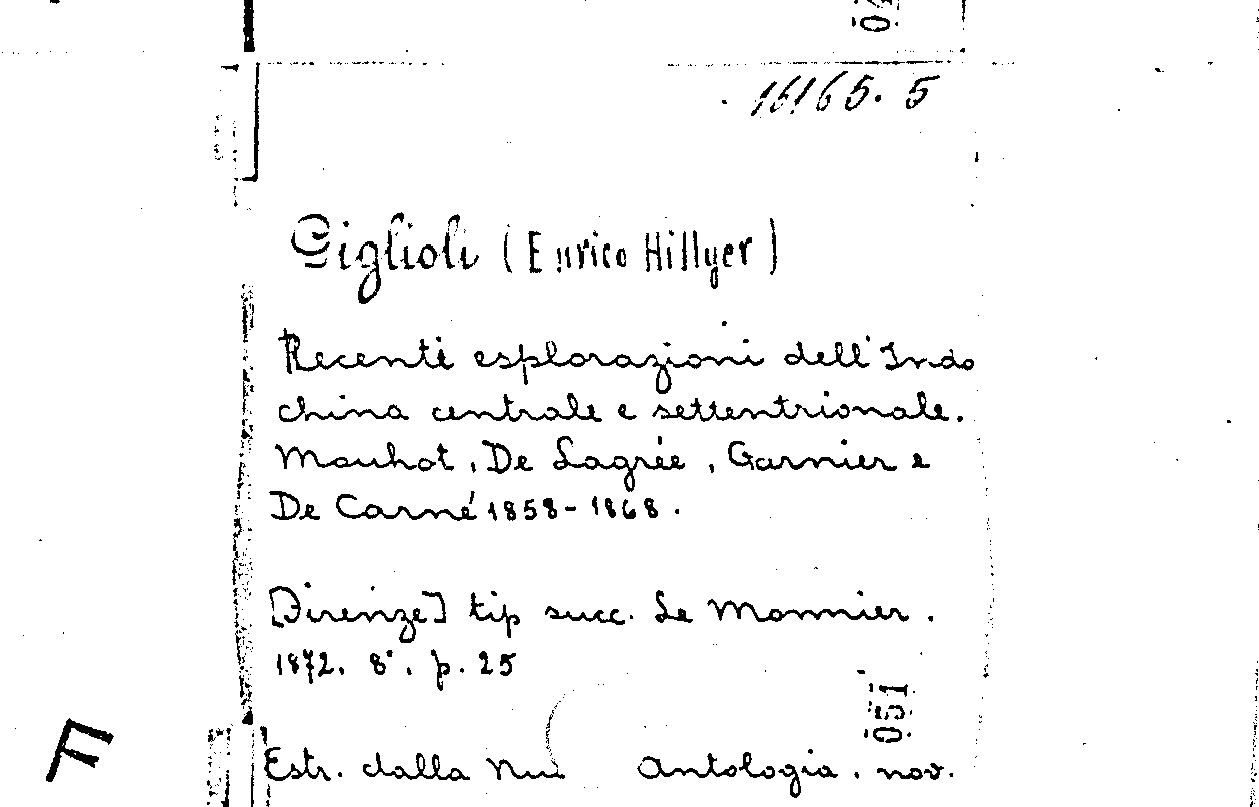 16165. 5
Giglioli (Enrico Hillyer)
Recenti esplorazioni dell'Indo
china centrale e settentrionale.
Mouhot, De Lagrée, Garnier e
De Carné 1858-1868.
[Firenze] tip succ. Le Monnier.
1872. 8°. p. 25
051
F
Estr. dalla Antologia. nov.